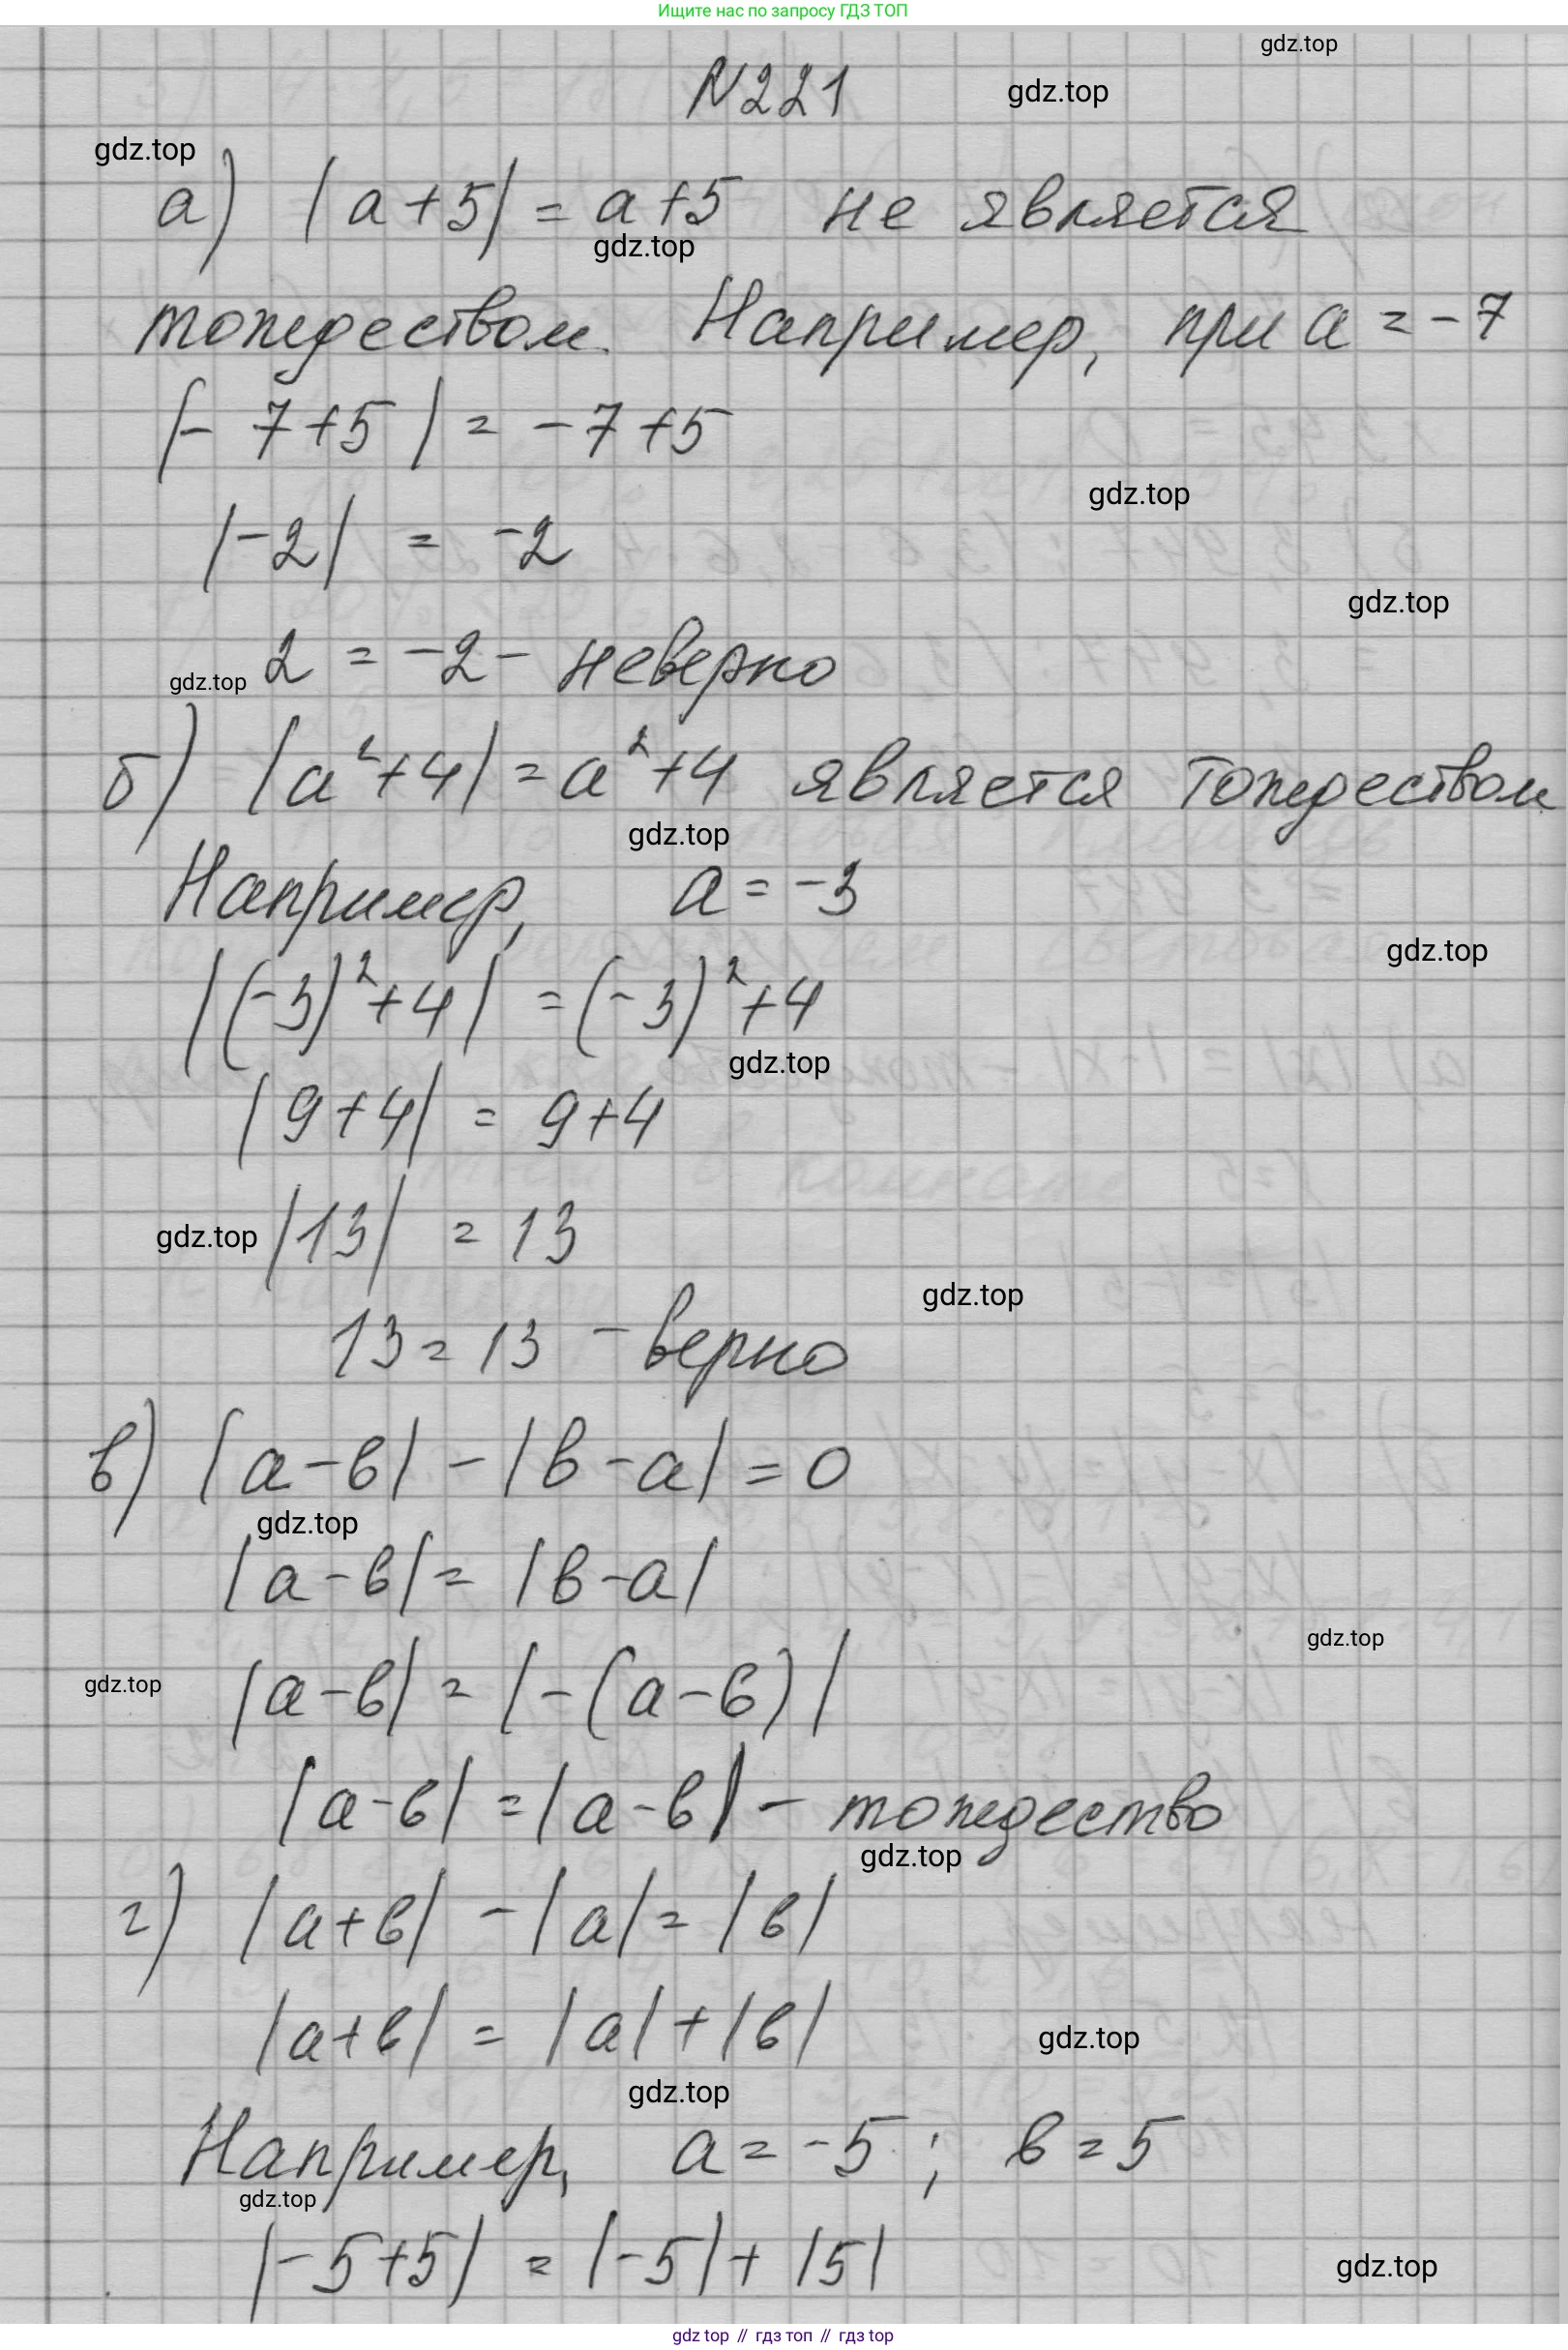 Ищите нас по запросу ГДЗ ТОП
gdz.top
N221
gdz.top
gdz.top
а) |a+5| = a+5 не является
gdz.top
тождеством. Например, при a = -7
|-7+5| = -7+5
gdz.top
|-2| = -2
gdz.top
2 = -2 - неверно
gdz.top
б) |a²+4| = a²+4 является тождеством
gdz.top
Например, a = -3
gdz.top
|(-3)²+4| = (-3)²+4
gdz.top
|9+4| = 9+4
gdz.top
|13| = 13
gdz.top
13 = 13 - верно
в) |a-в| - |в-a| = 0
gdz.top
|a-в| = |в-a|
gdz.top
gdz.top
|a-в| = |-(a-в)|
|a-в| = |a-в| - тождество
gdz.top
г) |a+в| - |a| = |в|
|a+в| = |a| + |в|
gdz.top
gdz.top
Например, a = -5; в = 5
gdz.top
|-5+5| = |-5| + |5|
gdz.top
gdz top // гдз топ // гдз top